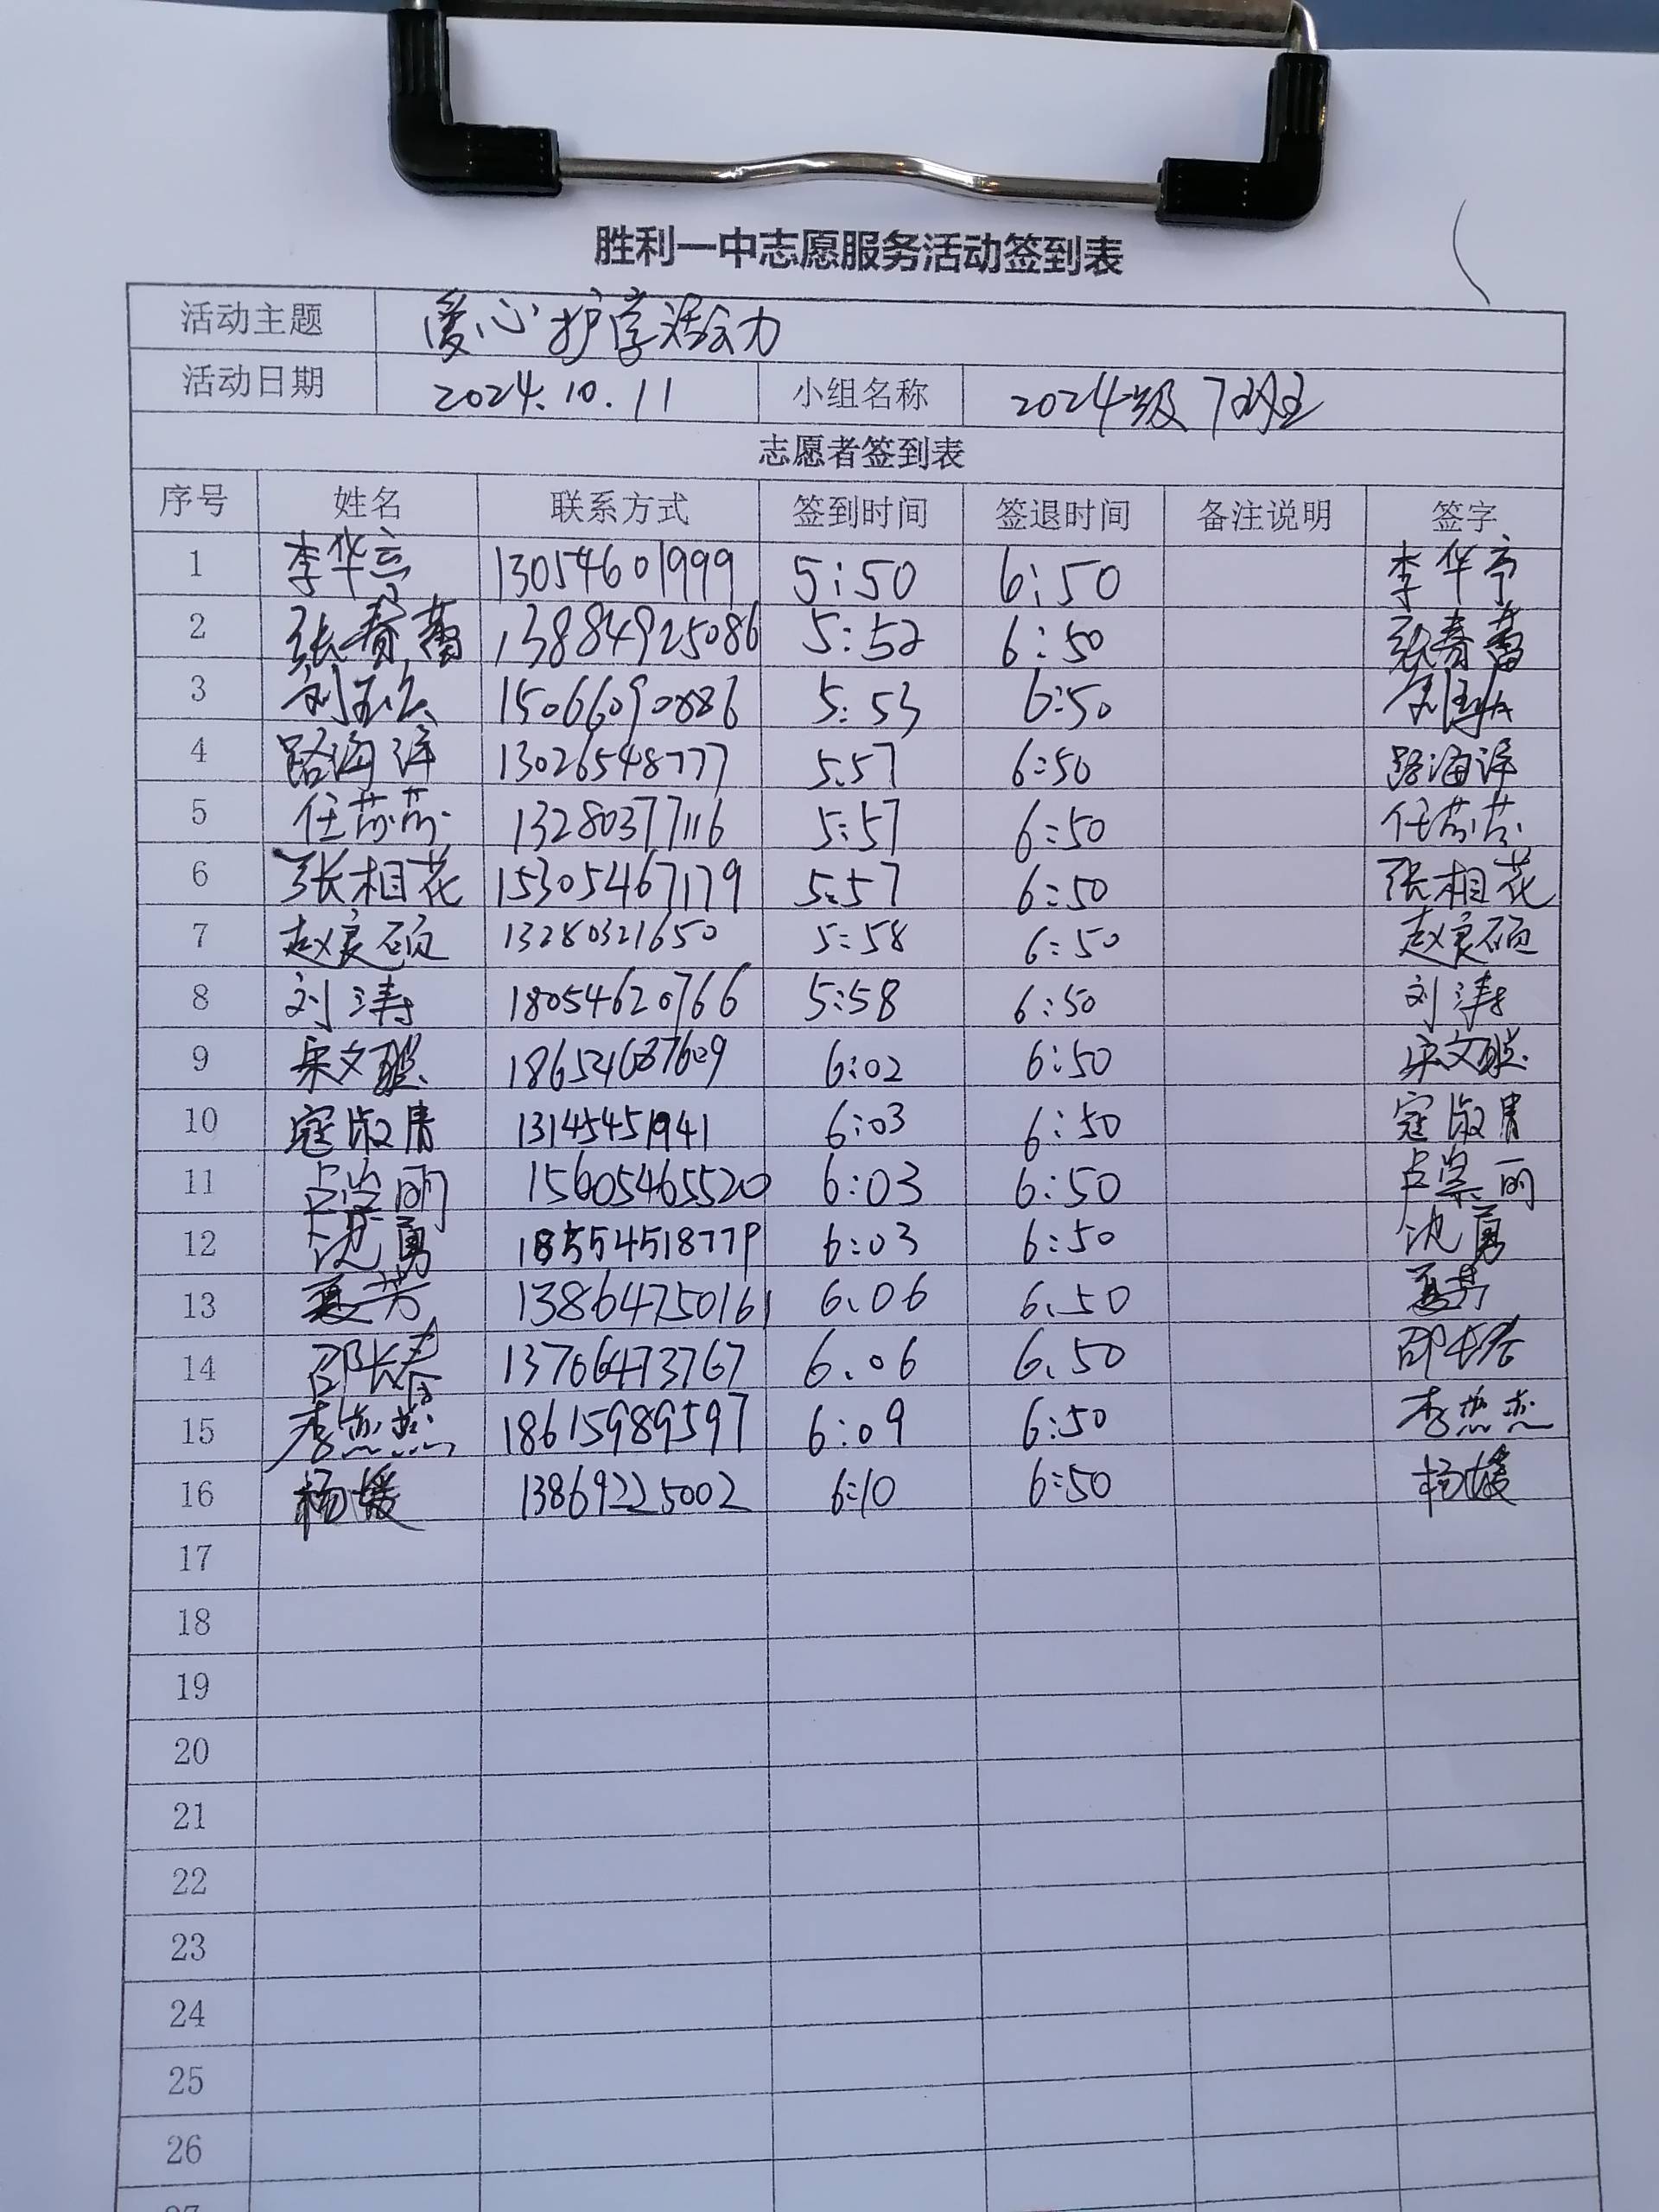 胜利一中志愿服务活动签到表
活动主题 爱心护学活动
活动日期 2024.10.11 小组名称 2024级7班
志愿者签到表
序号 姓名 联系方式 签到时间 签退时间 备注说明 签字
1 李华亭 13054601999 5:50 6:50 李华亭
2 张春蕾 13884925086 5:52 6:50 张春蕾
3 刘 15066090886 5:53 6:50 刘
4 路海洋 13026548777 5:57 6:50 路海洋
5 任莎莎 13280377116 5:57 6:50 任莎莎
6 张相花 15305467179 5:57 6:50 张相花
7 赵良硕 13280321650 5:58 6:50 赵良硕
8 刘涛 18054620766 5:58 6:50 刘涛
9 宋文聪 6:02 6:50 宋文聪
10 寇淑青 13145451941 6:03 6:50 寇淑青
11 丽 15605465520 6:03 6:50 丽
12 沈勇 18554518779 6:03 6:50 沈勇
13 夏芳 13864750161 6.06 6.50 夏芳
14 邵长春 13706473767 6.06 6.50 邵长春
15 李燕燕 18615989597 6:09 6:50 李燕燕
16 杨媛 13869225002 6:10 6:50 杨媛
17
18
19
20
21
22
23
24
25
26
27